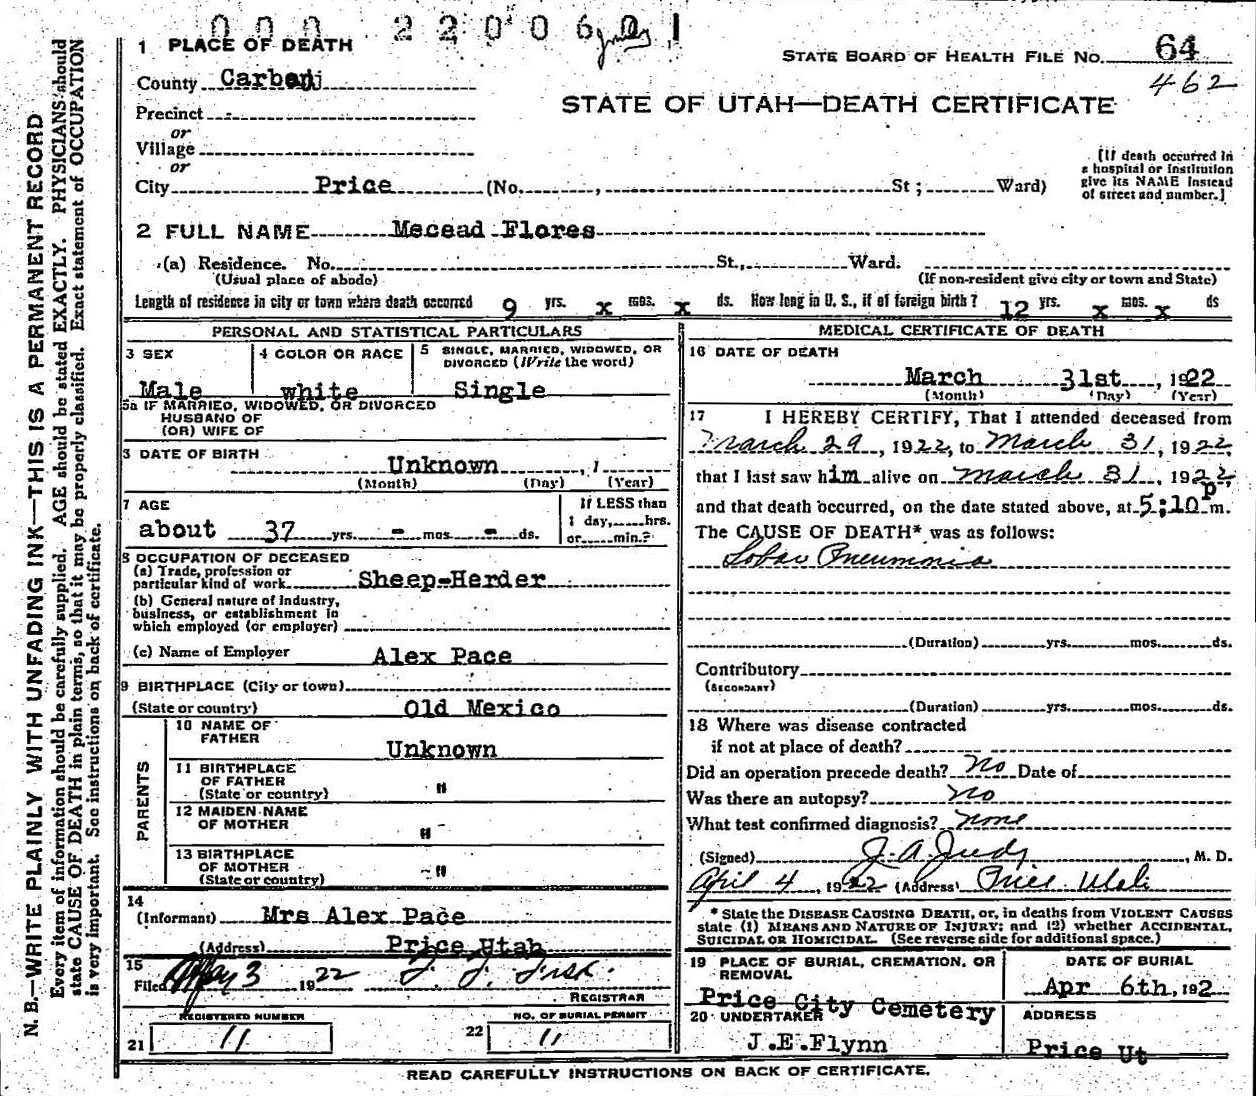 000 2200601
1 PLACE OF DEATH
STATE BOARD OF HEALTH FILE NO. 64
County Carbon
462
STATE OF UTAH—DEATH CERTIFICATE
Precinct -
or
Village
or
City Price (No. , St; Ward)
[If death occurred in
a hospital or institution
give its NAME instead
of street and number.]
2 FULL NAME Mecead Flores
(a) Residence. No. St., Ward.
(Usual place of abode) (If non-resident give city or town and State)
Length of residence in city or town where death occurred 9 yrs. x mos. x ds. How long in U. S., if of foreign birth? 12 yrs. x mos. x ds
PERSONAL AND STATISTICAL PARTICULARS
3 SEX
Male
4 COLOR OR RACE
white
5 SINGLE, MARRIED, WIDOWED, OR
DIVORCED (Write the word)
Single
5a IF MARRIED, WIDOWED, OR DIVORCED
HUSBAND OF
(OR) WIFE OF
DATE OF BIRTH
Unknown , 1
(Month) (Day) (Year)
7 AGE
about 37 yrs. - mos. - ds.
If LESS than
1 day, hrs.
or min.?
8 OCCUPATION OF DECEASED
(a) Trade, profession or
particular kind of work Sheep-Herder
(b) General nature of industry,
business, or establishment in
which employed (or employer)
(c) Name of Employer Alex Pace
9 BIRTHPLACE (City or town)
(State or country) Old Mexico
PARENTS
10 NAME OF
FATHER Unknown
11 BIRTHPLACE
OF FATHER "
(State or country)
12 MAIDEN NAME
OF MOTHER "
13 BIRTHPLACE
OF MOTHER - "
(State or country)
14
(Informant) Mrs Alex Pace
(Address) Price Utah
15
Filed May 3 1922 F. F. Fisk.
REGISTRAR
REGISTERED NUMBER
21 11
NO. OF BURIAL PERMIT
22 11
MEDICAL CERTIFICATE OF DEATH
16 DATE OF DEATH
March 31st , 1922
(Month) (Day) (Year)
17 I HEREBY CERTIFY, That I attended deceased from
March 29, 1922, to March 31, 1922,
that I last saw him alive on March 31, 1922,
and that death occurred, on the date stated above, at 5:10 p m.
The CAUSE OF DEATH* was as follows:
Lobar Pneumonia
(Duration) yrs. mos. ds.
Contributory
(SECONDARY)
(Duration) yrs. mos. ds.
18 Where was disease contracted
if not at place of death?
Did an operation precede death? No Date of
Was there an autopsy? no
What test confirmed diagnosis? none
(Signed) J. A. Judy , M. D.
April 4, 1922 (Address) Price Utah
* State the DISEASE CAUSING DEATH, or, in deaths from VIOLENT CAUSES
state (1) MEANS AND NATURE OF INJURY; and (2) whether ACCIDENTAL,
SUICIDAL OR HOMICIDAL. (See reverse side for additional space.)
19 PLACE OF BURIAL, CREMATION, OR
REMOVAL
Price City Cemetery
DATE OF BURIAL
Apr 6th, 192
20 UNDERTAKER
J.E.Flynn
ADDRESS
Price Ut
READ CAREFULLY INSTRUCTIONS ON BACK OF CERTIFICATE.
N. B.—WRITE PLAINLY WITH UNFADING INK—THIS IS A PERMANENT RECORD
Every item of information should be carefully supplied. AGE should be stated EXACTLY. PHYSICIANS should
state CAUSE OF DEATH in plain terms, so that it may be properly classified. Exact statement of OCCUPATION
is very important. See instructions on back of certificate.